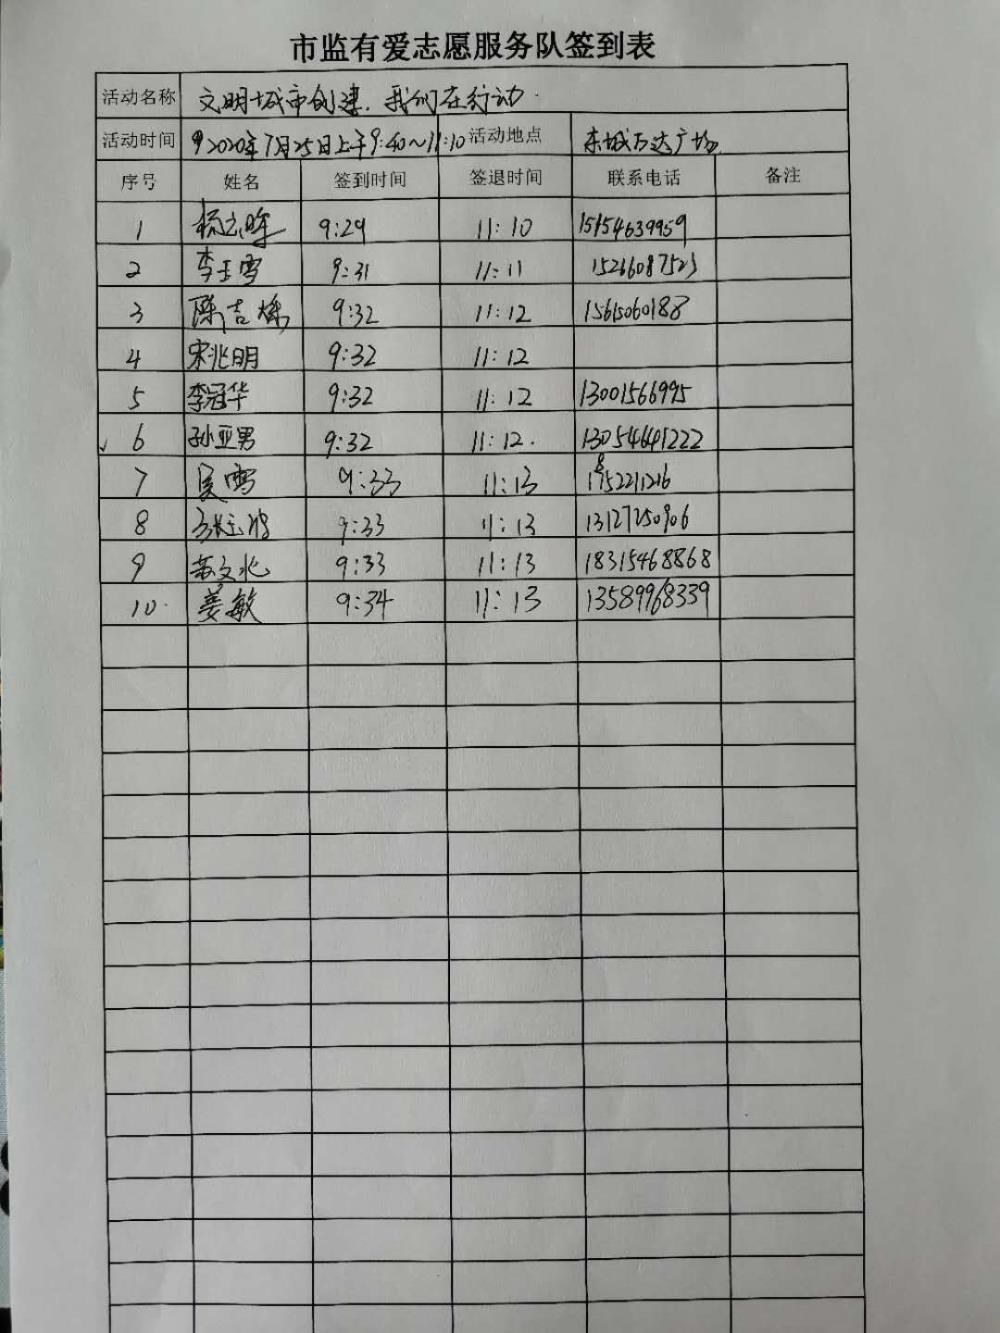 市监有爱志愿服务队签到表
活动名称 文明城市创建，我们在行动
活动时间 2020年7月25日上午9:40~11:10 活动地点 东城万达广场
序号 姓名 签到时间 签退时间 联系电话 备注
1 9:29 11:10 15154639959
2 李玉雪 9:31 11:11 15266087523
3 陈吉 9:32 11:12 15615060188
4 宋兆明 9:32 11:12
5 李冠华 9:32 11:12 13001566995
6 孙亚男 9:32 11:12 13054641222
7 9:33 11:13
8 9:33 11:13 13127250906
9 苏文兆 9:33 11:13 18315468868
10 姜敏 9:34 11:13 13589968339